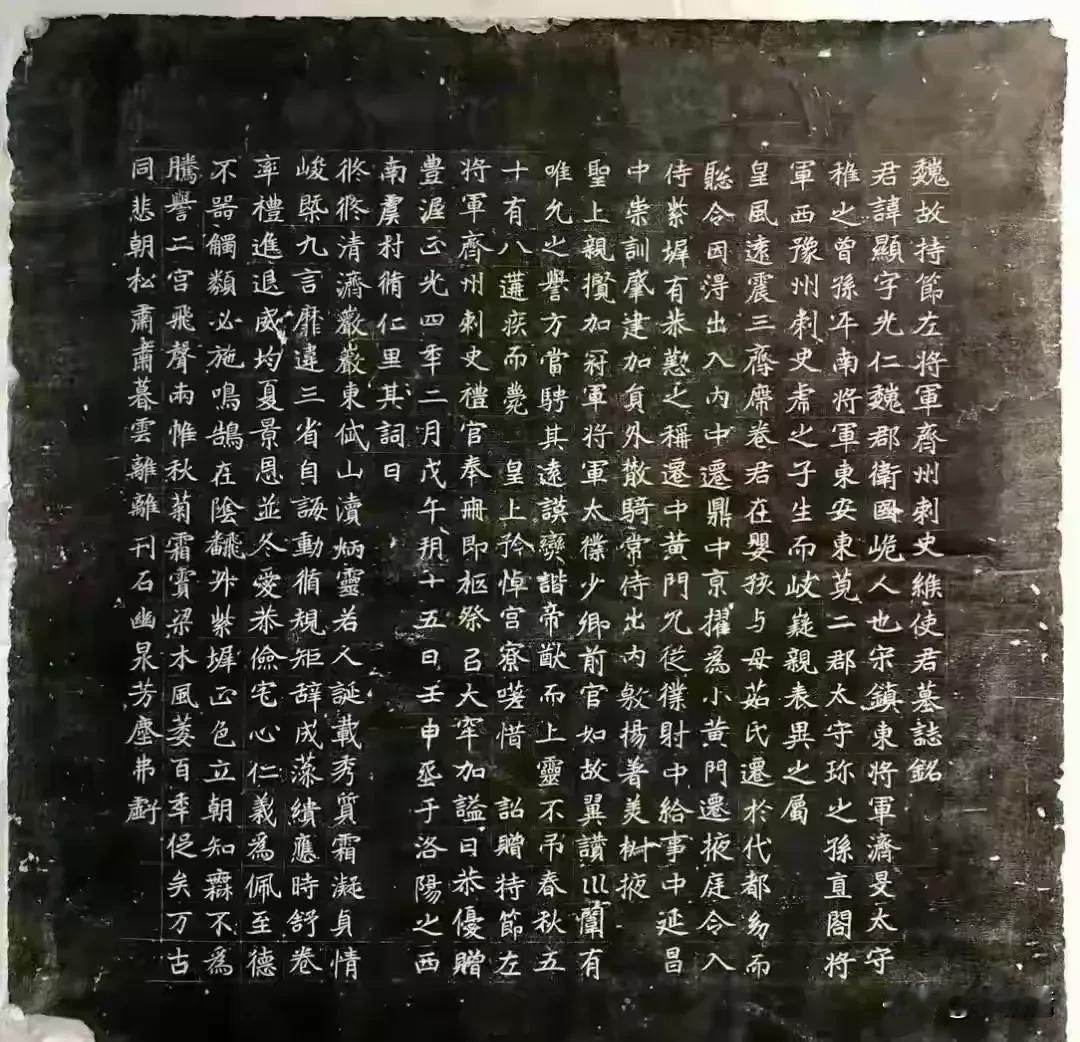 魏故持節左將軍齊州刺史維使君墓誌銘
君諱顯字光仁魏郡衛國嵬人也宋鎮東將軍濟旻太守
稚之曾孫平南將軍東安東莞二郡太守珎之孫直閤將
軍西豫州刺史彪之子生而岐嶷親表異之屬
皇風遠震三齊席卷君在嬰孩与母茹氏遷於代都㓜而
聡令因淂出入內中遷鼎中京擢為小黃門還掖庭令入
侍紫墀有恭懃之稱遷中黃門冗從僕射中給事中延昌
中崇訓肇建加負外散騎常侍出內敭揚著美樹掖
聖上親攬加冠軍將軍太僕少卿前官如故翼讃川闈有
唯允之譽方當騁其遠謨孌諧帝猷而上靈不吊春秋五
十有八遘疾而薨 皇上矜悼宮寮嗟惜 詔贈持節左
將軍齊州刺史禮官奉冊即柩祭㠯大牢加謚曰恭優贈
豊渥正光四年二月戊午朔十五日壬申𦵏于洛陽之西
南虞村脩仁里其詞曰
悠悠清濟巖巖東岱山瀆炳靈若人誕載秀質霜凝貞情
峻槩九言靡違三省自誨動循規矩辞成藻繢應時舒卷
率禮進退威均夏景恩並冬愛恭儉宅心仁義為佩至德
不器觸類必施鳴鵠在陰飜外紫墀正色立朝知無不為
騰譽二宮飛聲兩帷秋菊霜賈梁木風萎百年促矣万古
同悲朝松肅肅暮雲離離刊石幽泉芳塵弗虧